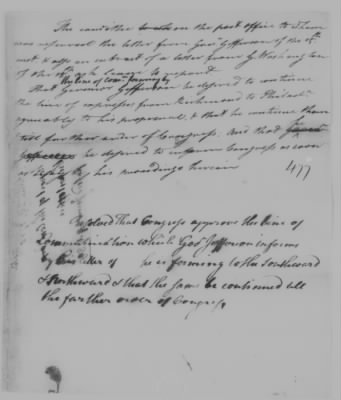 The committee on the post office to whom
was referred the letter from Gov Jefferson of the
inst & also an extract of a letter from G. Washington
of the beg leave to report
the line of comn. forming by
That Governor Jefferson be desired to continue
the line of expresses from Richmond to Philada.
agreeably to his proposal, & that he continue them
till further order of Congress: And that
he desired to inform Congress as soon
as his proceedings herein
477
Resolved That Congress approve the line of
Communication which Gov Jefferson informs
by his letter of he is forming to the Southward
& Northward & that the same be continued till
the farther order of Congress